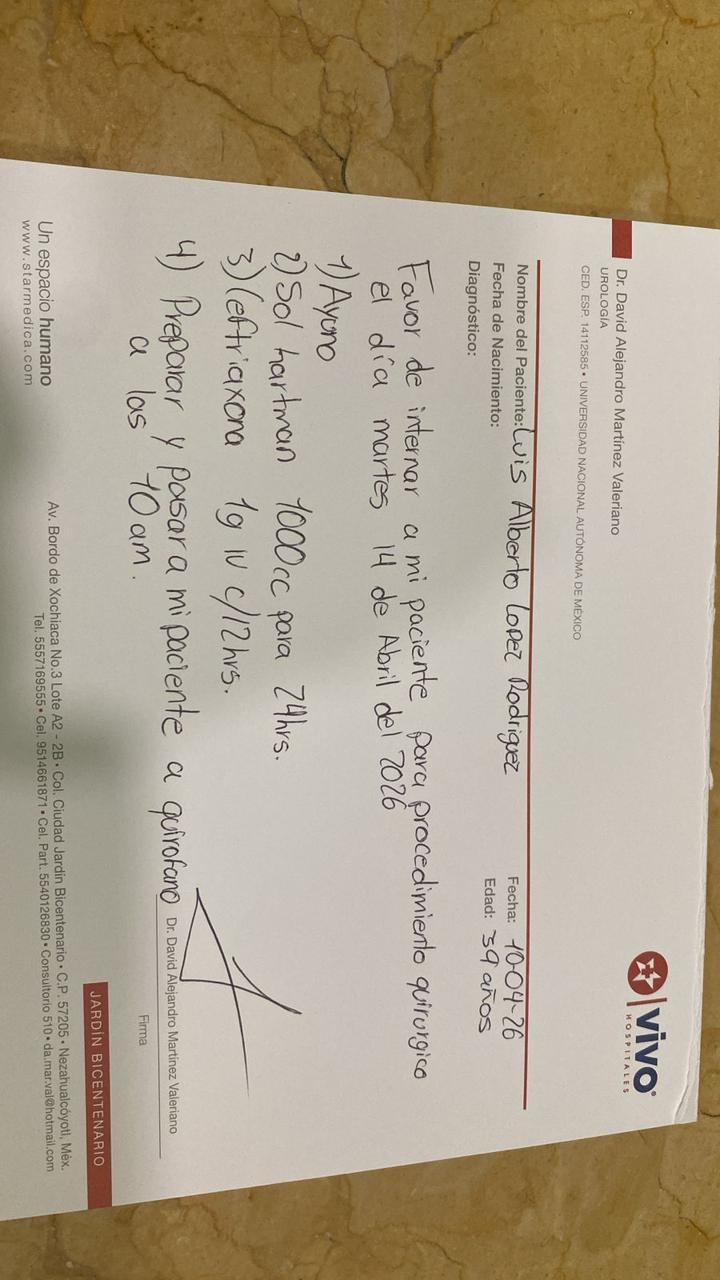 Dr. David Alejandro Martínez Valeriano
UROLOGÍA
CED. ESP. 14112585 • UNIVERSIDAD NACIONAL AUTÓNOMA DE MÉXICO
vivo
HOSPITALES
Nombre del Paciente: Luis Alberto Lopez Rodriguez Fecha: 10-04-26
Fecha de Nacimiento: Edad: 39 años
Diagnóstico:
Favor de internar a mi paciente para procedimiento quirurgico
el día martes 14 de Abril del 2026
1) Ayuno
2) Sol hartman 1000cc para 24hrs.
3) Ceftriaxona 1g IV c/12hrs.
4) Preparar y pasar a mi paciente a quirofano
a las 10 am.
Dr. David Alejandro Martínez Valeriano
Firma
JARDÍN BICENTENARIO
Un espacio humano
www.starmedica.com
Av. Bordo de Xochiaca No.3 Lote A2 - 2B • Col. Ciudad Jardín Bicentenario • C.P. 57205 • Nezahualcóyotl, Méx.
Tel. 5557169555 • Cel. 9514661871 • Cel. Part. 5540126830 • Consultorio 510 • da.mar.val@hotmail.com